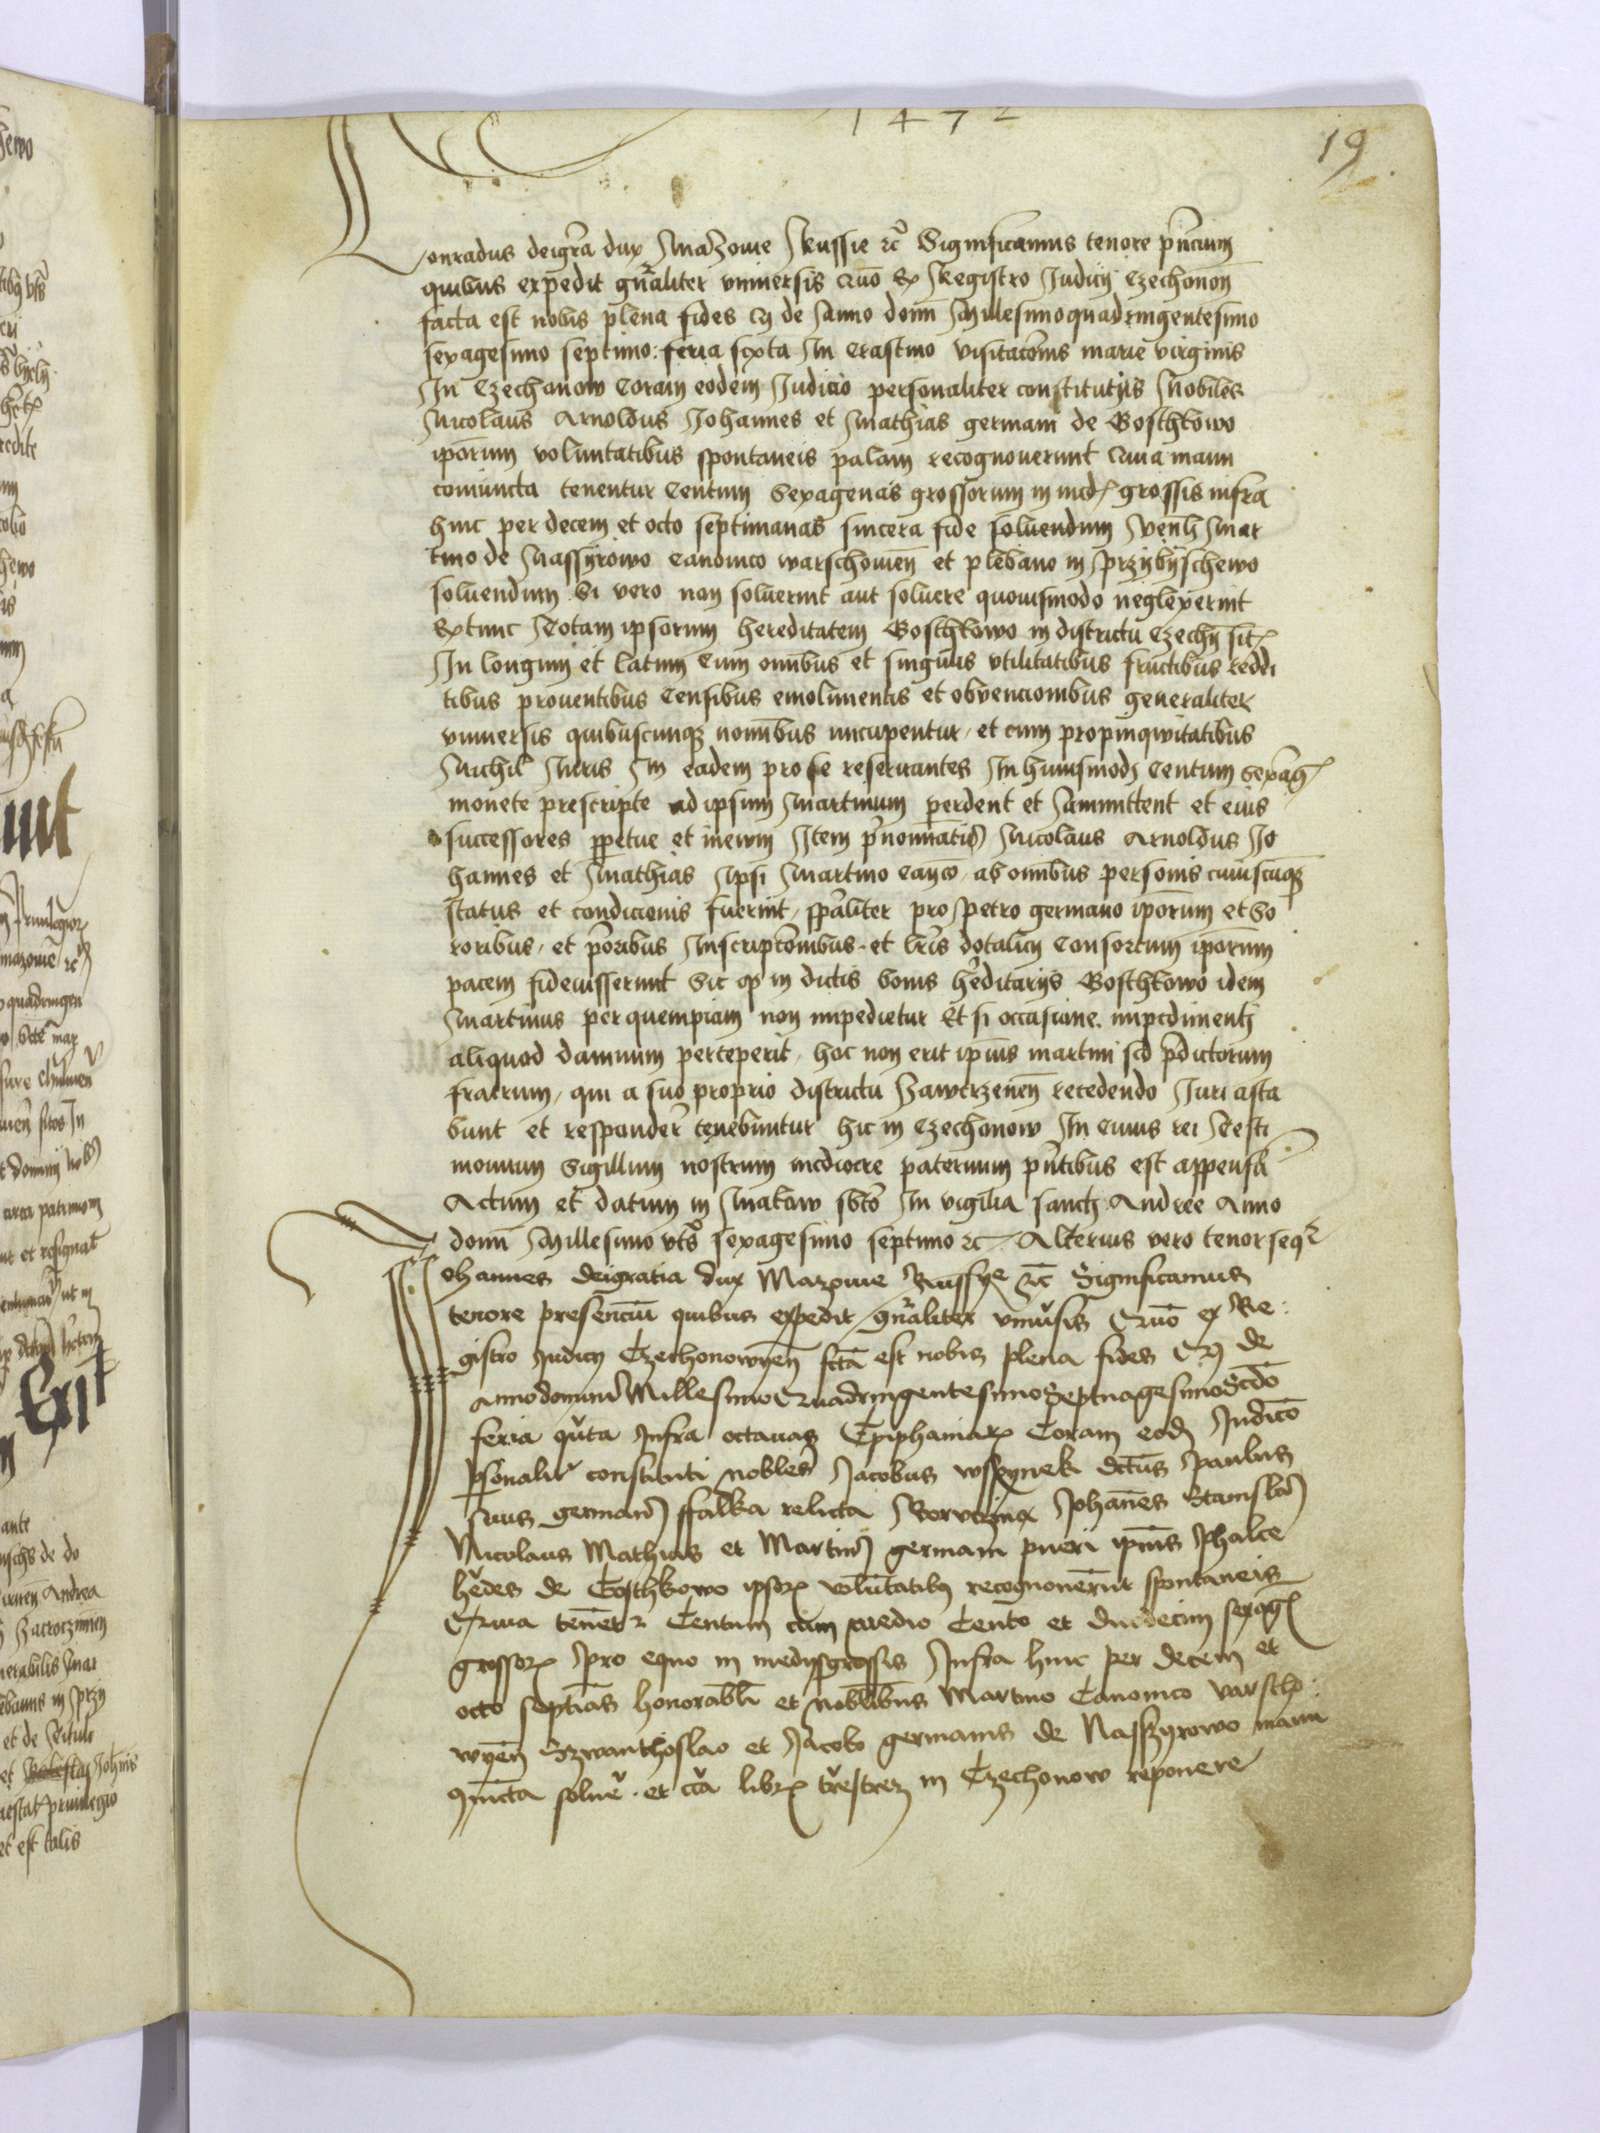 1472
19
Conradus dei gr̄a dux Mazouie Russie rc̄ Significamus tenore p̄ncium
quibus expedit gn̄aliter vniuersis Quō Ex Registro Judicij Czechonon̄
facta est nobis plena fides Q de Anno domī Millesimoquadringentesimo
sexagesimo septimo: feria sexta In Crastino visitac̄onis marie virginis
In Czechanow Coram eodem Judicio personaliter constitutijs Nobiles
Nicolaus Arnoldus Johannes et Mathias germani de Gosthkowo
ip̄orum voluntatibus spontaneis palam recognouerunt Quia manu
coniuncta tenentur Centum Sexagenas grossorum in med grossis infra
hinc per decem et octo septimanas sincera fide soluendum Ven̄li Mar
tino de Nassyrowo Canonico warschouien̄ et plebano in Przybyschewo
soluendum Si vero non soluerint aut soluere quouismodo neglexerint
Extunc Totam ipsorum hereditatem Gosthkowo in districtu Czechn̄ sit
In longum et latum Cum omībus et singulis vtilitatibus fructibus reddi
tibus prouentibus Censibus emolimentis et obuencionibus generaliter
vniuersis quibuscunqz nomībus nucupentur, et cum propinqwitatibus
Nichil Juris In eadem pro se reseruantes In huiusmodi Centum Sexag
monete prescripte ad ipsum Martinum perdent et Ammittent et eius
successores p̄petue et ineuum Item p̄nominati Nicolaus Arnoldus Jo
hannes et Mathias Ipsi Martino Can̄co, ab omībus personis cuiuscūqz
status et condicionis fuerint, sp̄aliter pro Petro germano ip̄orum et So
roribus, et p̄oribus Inscripc̄onibus, et lr̄is dotalicij Consortum ip̄orum
pacem fideiusserunt Sic q̄ in dictis bonis h̄editarijs Gosthkowo idem
Martinus per quempiam non impedietur Et si occasione impedimenti
aliquod damnum perceperit, hoc non erit ip̄ius martini sed p̄dictorum
fratrum, qui a suo proprio districtu Zawcrzenen̄ recedendo Juri asta
bunt et responder̄ tenebuntur hic in Czechonow In Cuius rei Testi
monium Sigillum nostrum mediocre paternum p̄ntibus est appensū
Actum et datum in Makow sb̄to In vigilia sancti Andree Anno
domī Millesimo vts̄ sexagesimo septimo rc̄ Alterius vero tenor seq̄r
Johannes deigratia dux Mazouie Russye rc̄ Significamus
tenore presenciū quibus expedit gn̄aliter vniūsis Quō ex Re
gistro Judicij Czechonowyen̄ fctā est nobis plena fides Q de
Annodomini Millesimo Quadringentesimo Septuagesimo Scdō
feria qrta Infra octauas Epiphaniar Coram eod Judicō
psonalitr constituti nobles Jacobus wssynek dctūs Paulus
suus german ffalka relicta Johānes Stanisla
Nicolaus Mathias et Martin germani pueri ip̄ius Phalce
hedes de Gosthkowo ipsor volūtatibz recognouerūt spontaneis
Quia tenētr Centum cum medio Cento et duodecim sexag
grossor Pro equo in medysgrossis Infra hinc per decem et
octo septīas honorabli et noblibus Martino Canonico varscho
wyen̄ Szwanthoslao et Jacobo germanis de Nasszyrowo manu
9iūcta soluē et circa libr terrestrez in Czechonow reponere